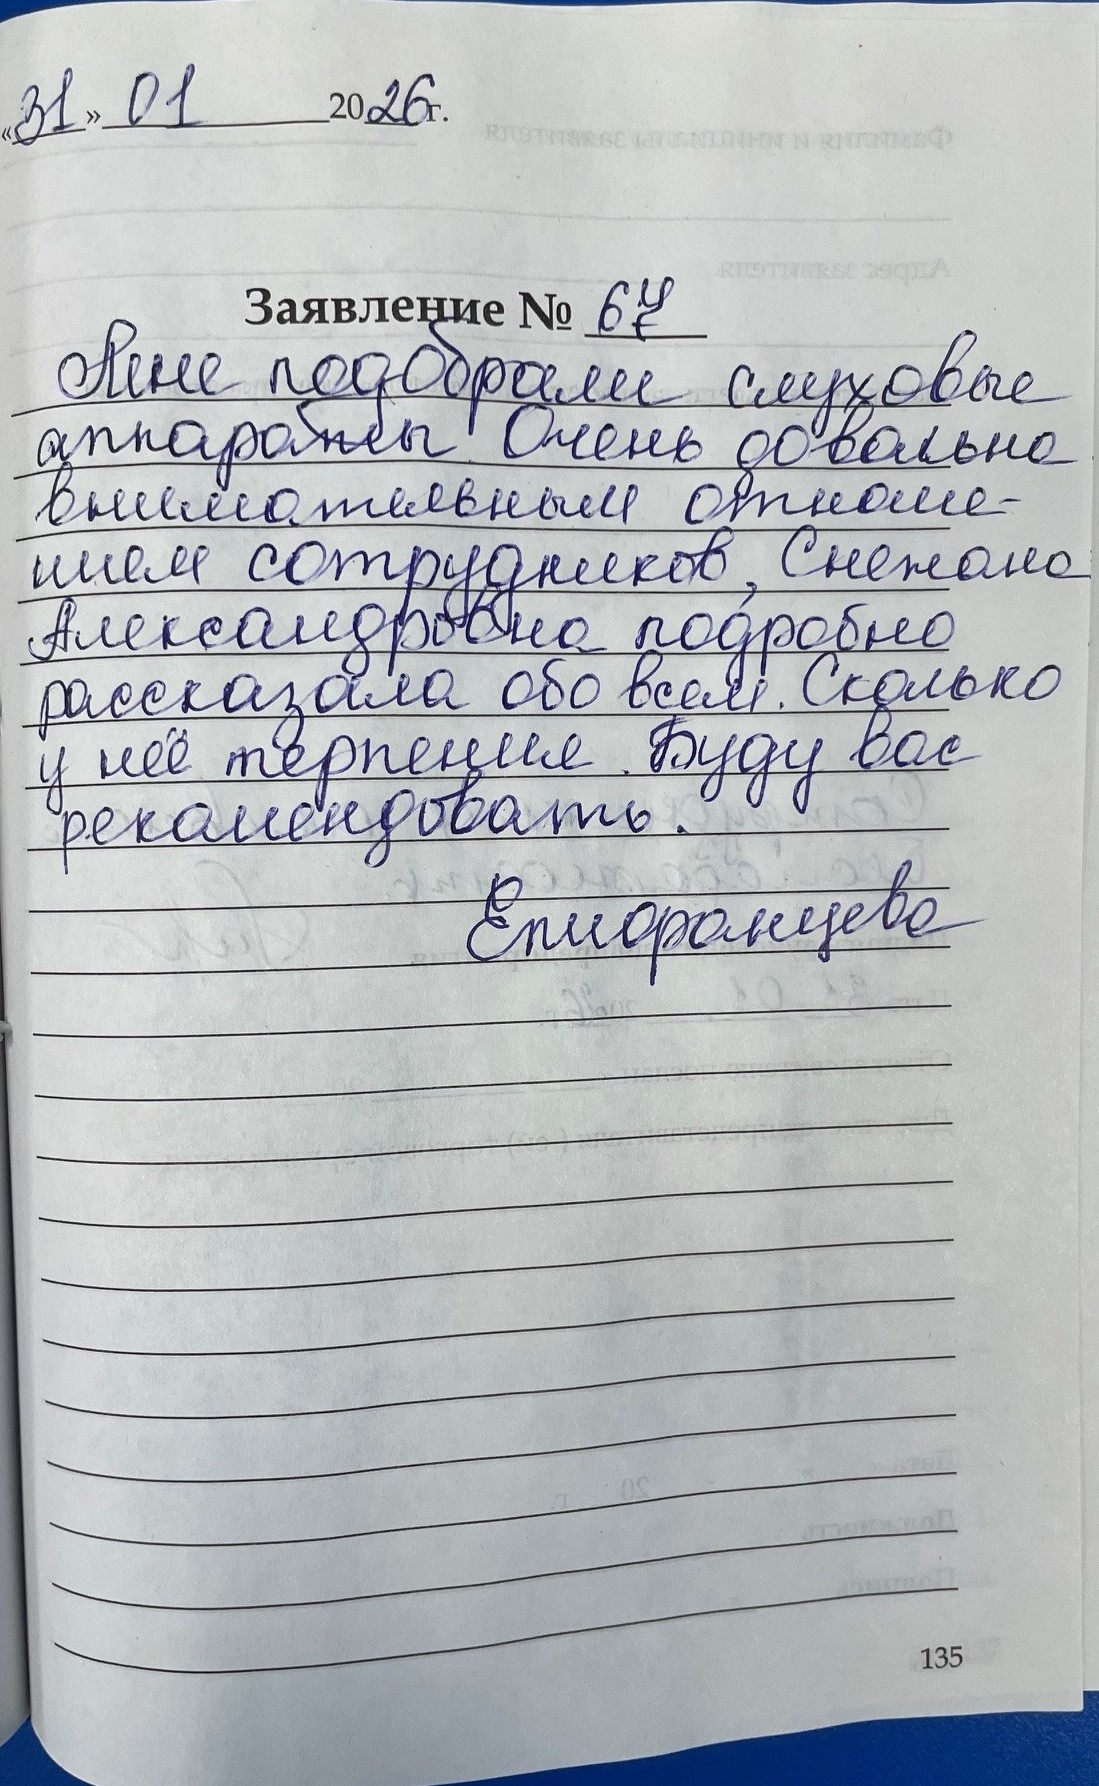 «31» 01 2026г.
Заявление № 67
Мне подобрали слуховые
аппараты. Очень довольна
внимательным отноше-
нием сотрудников, Снежана
Александровна подробно
рассказала обо всем. Сколько
у неё терпения. Буду вас
рекомендовать.
135